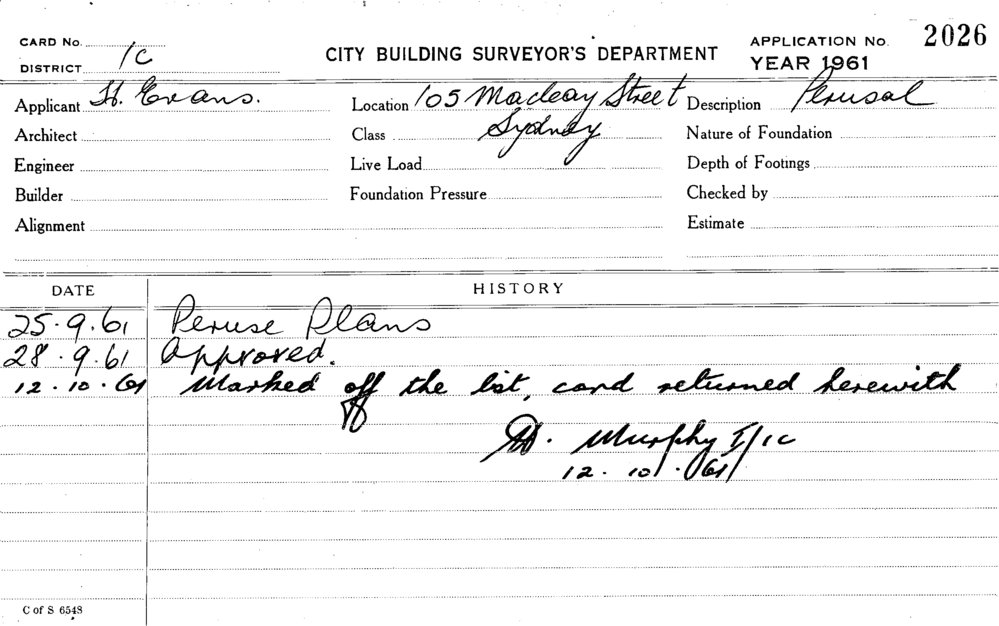 CARD No.
DISTRICT 1C
CITY BUILDING SURVEYOR'S DEPARTMENT
APPLICATION No. 2026
YEAR 1961
Applicant H. Evans. Location 105 Macleay Street Description Perusal
Architect Class Sydney Nature of Foundation
Engineer Live Load Depth of Footings
Builder Foundation Pressure Checked by
Alignment Estimate
DATE HISTORY
25.9.61 Peruse Plans
28.9.61 Approved.
12.10.61 Marked off the list, card returned herewith
Murphy I/1C
12.10.61
C of S 6548